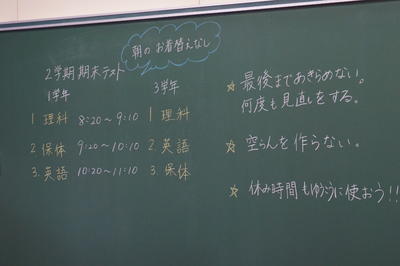 朝の お着替えなし
2学期 期末テスト
1学年 3学年
1 理科 8:20~9:10 1 理科
2. 保体 9:20~10:10 2. 英語
3. 英語 10:20~11:10 3. 保体
☆ 最後まであきらめない。
何度も見直しをする。
☆ 空らんを作らない。
☆ 休み時間もゆうこうに使おう!!